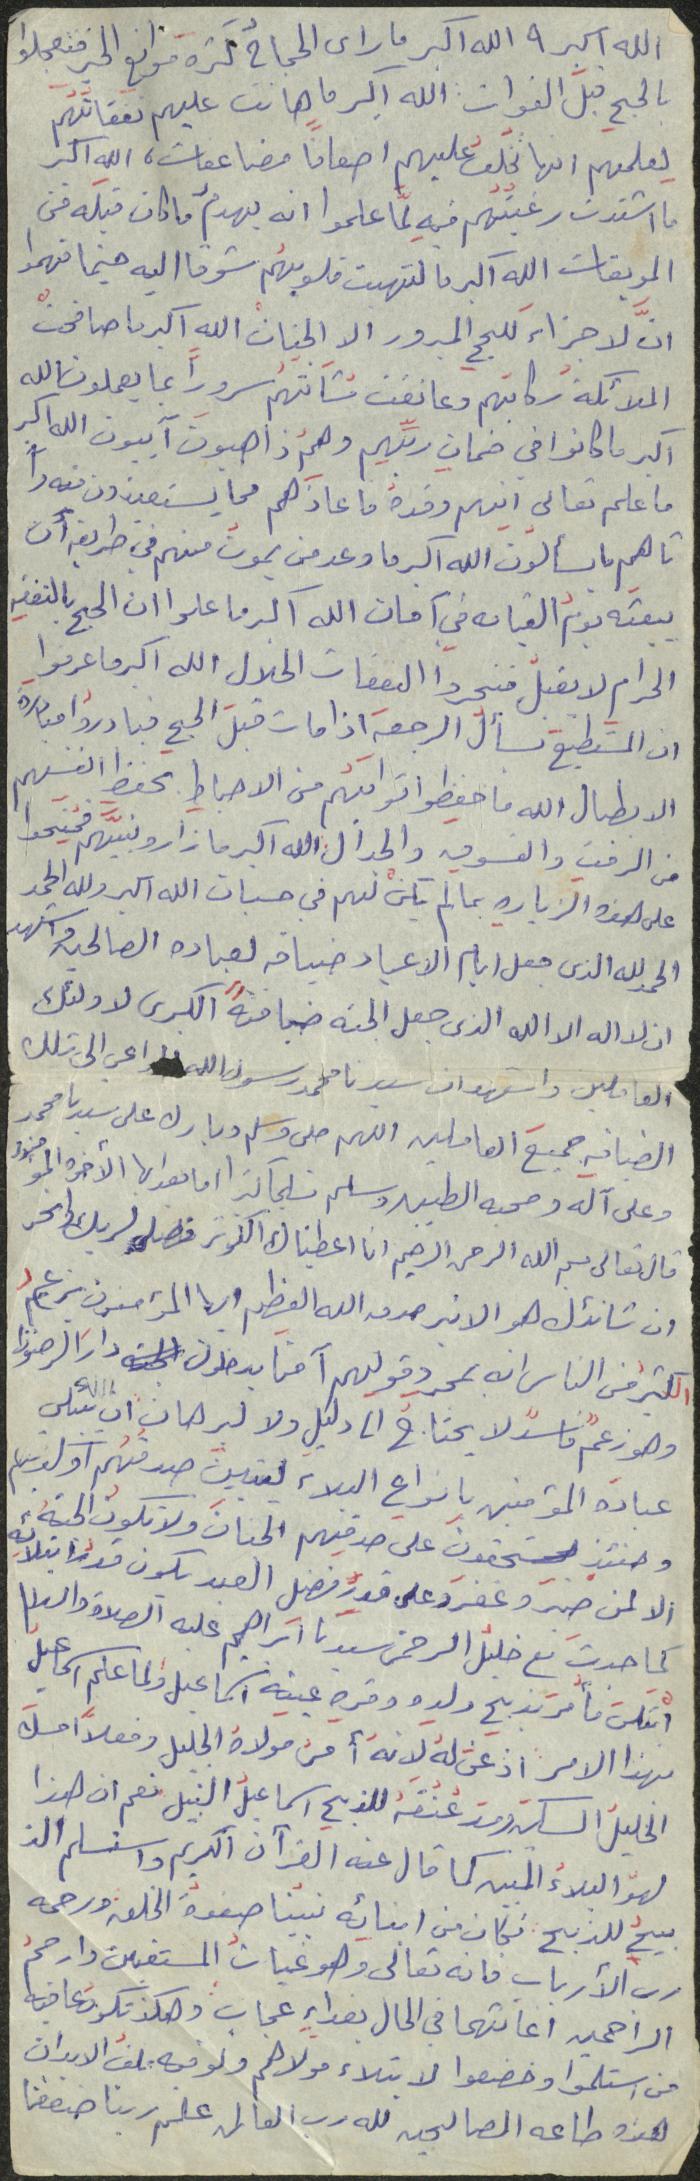 الله اكبر ٩ الله اكبر ما راى الحجاج كثرة موانع الخير فتعجلوا
بالحج قبل الفوات الله اكبر ما هانت عليهم نفقاتهم
لعلمهم انها تخلف عليهم اضعافا مضاعفات، الله اكبر
ما اشتدت رغبتهم فيه لما علموا انه يهدم ما كان قبله من
الموبقات الله اكبر ما التهبت قلوبهم شوقا اليه حينما فهموا
ان لا جزاء للحج المبرور الا الجنات الله اكبر ما صافحت
الملائكة ركابهم وعانقت مشاتهم سرورا بما يعملون الله
اكبر ما كانوا في ضمان ربهم وهم ذاهبون آيبون الله اكبر
ما علم تعالى انهم وفده فاعاذهم مما يستعيذون منه وآ
تاهم ما يسألون الله اكبر ما وعد من يموت منهم في طريقه أن
يبعثه يوم القيامه في آمان الله اكبر ما علموا ان الحج بالنفقه
الحرام لا يقبل فتحروا النفقات الحلال الله اكبر ما عرفوا
ان المستطيع يسأل الرجعة اذا مات قبل الحج فبادروا مبادرة
الابطال الله ما حفظوا ثوابهم من الاحباط بحفظ انفسهم
من الرفث والفسوق والجدال الله اكبر ما زاروا نبيهم فمنحوا
على هذه الزياره بما لم يكن لهم في حسبات الله اكبر ولله الحمد
الحمد لله الذى جعل ايام الاعياد ضيافه لعباده الصالحين واشهد
ان لا اله الا الله الذى جعل الجنه ضيافتة الكبرى لاولئك
العاملين واشهد ان سيدنا محمد رسول الله الداعى الى تلك
الضيافه جميع العاملين اللهم صلى وسلم وبارك على سيدنا محمد
وعلى آله وصحبه الطيبين وسلم تسليما كثيرا اما بعد ايها الأخوة المؤمنون
قال تعالى بسم الله الرحمن الرحيم انا اعطيناك الكوثر فصل لربك وانحر
ان شانئك هو الابتر صدق الله العظيم ايها المؤمنون يزعم
الكثير من الناس انه بمجرد قولهم آمنا يدخلون دار الرضوان
وهو زعم فاسد لا يحتاج الى دليل ولا لبرهان ان الله يبتلى
عباده المؤمنين بانواع البلاء ليتبين صدقهم او كذبهم
وحنئذ يستحقون على صدقهم الجنات ولا تكون الجنة
الا لمن صبر وغفر وعلى قدر فضل العبد يكون قدر ابتلائه
كما حدث مع خليل الرحمن سيدنا ابراهيم عليه الصلاة والسلام
ابتلى فأمر بذبح ولده وقرة عينه اسماعيل ولما علم اسماعيل
بهذا الامر اذعن له لانه أمر مولاه الجليل وفعلا امسك
الخليل السكين ومد عنقه للذبح اسماعيل النبيل نعم ان هذا
لهو البلاء المبين كما قال عنه القرآن الكريم واستسلم الذ
بيح للذبح فكان من ابنائه نبينا صفوة الخلق ورحمه
رب الأرباب فانه تعالى وهو غياث المستغيثين وارحم
الراحمين اغاثهما في الحال بفداء عجاب وهكذا تكون عاقبة
من استسلموا وخضعوا لابتلاء مولاهم ولو فيه تلف الابدان
هذه طاعه الصالحين لله رب العالمين علم ربنا ضعفنا